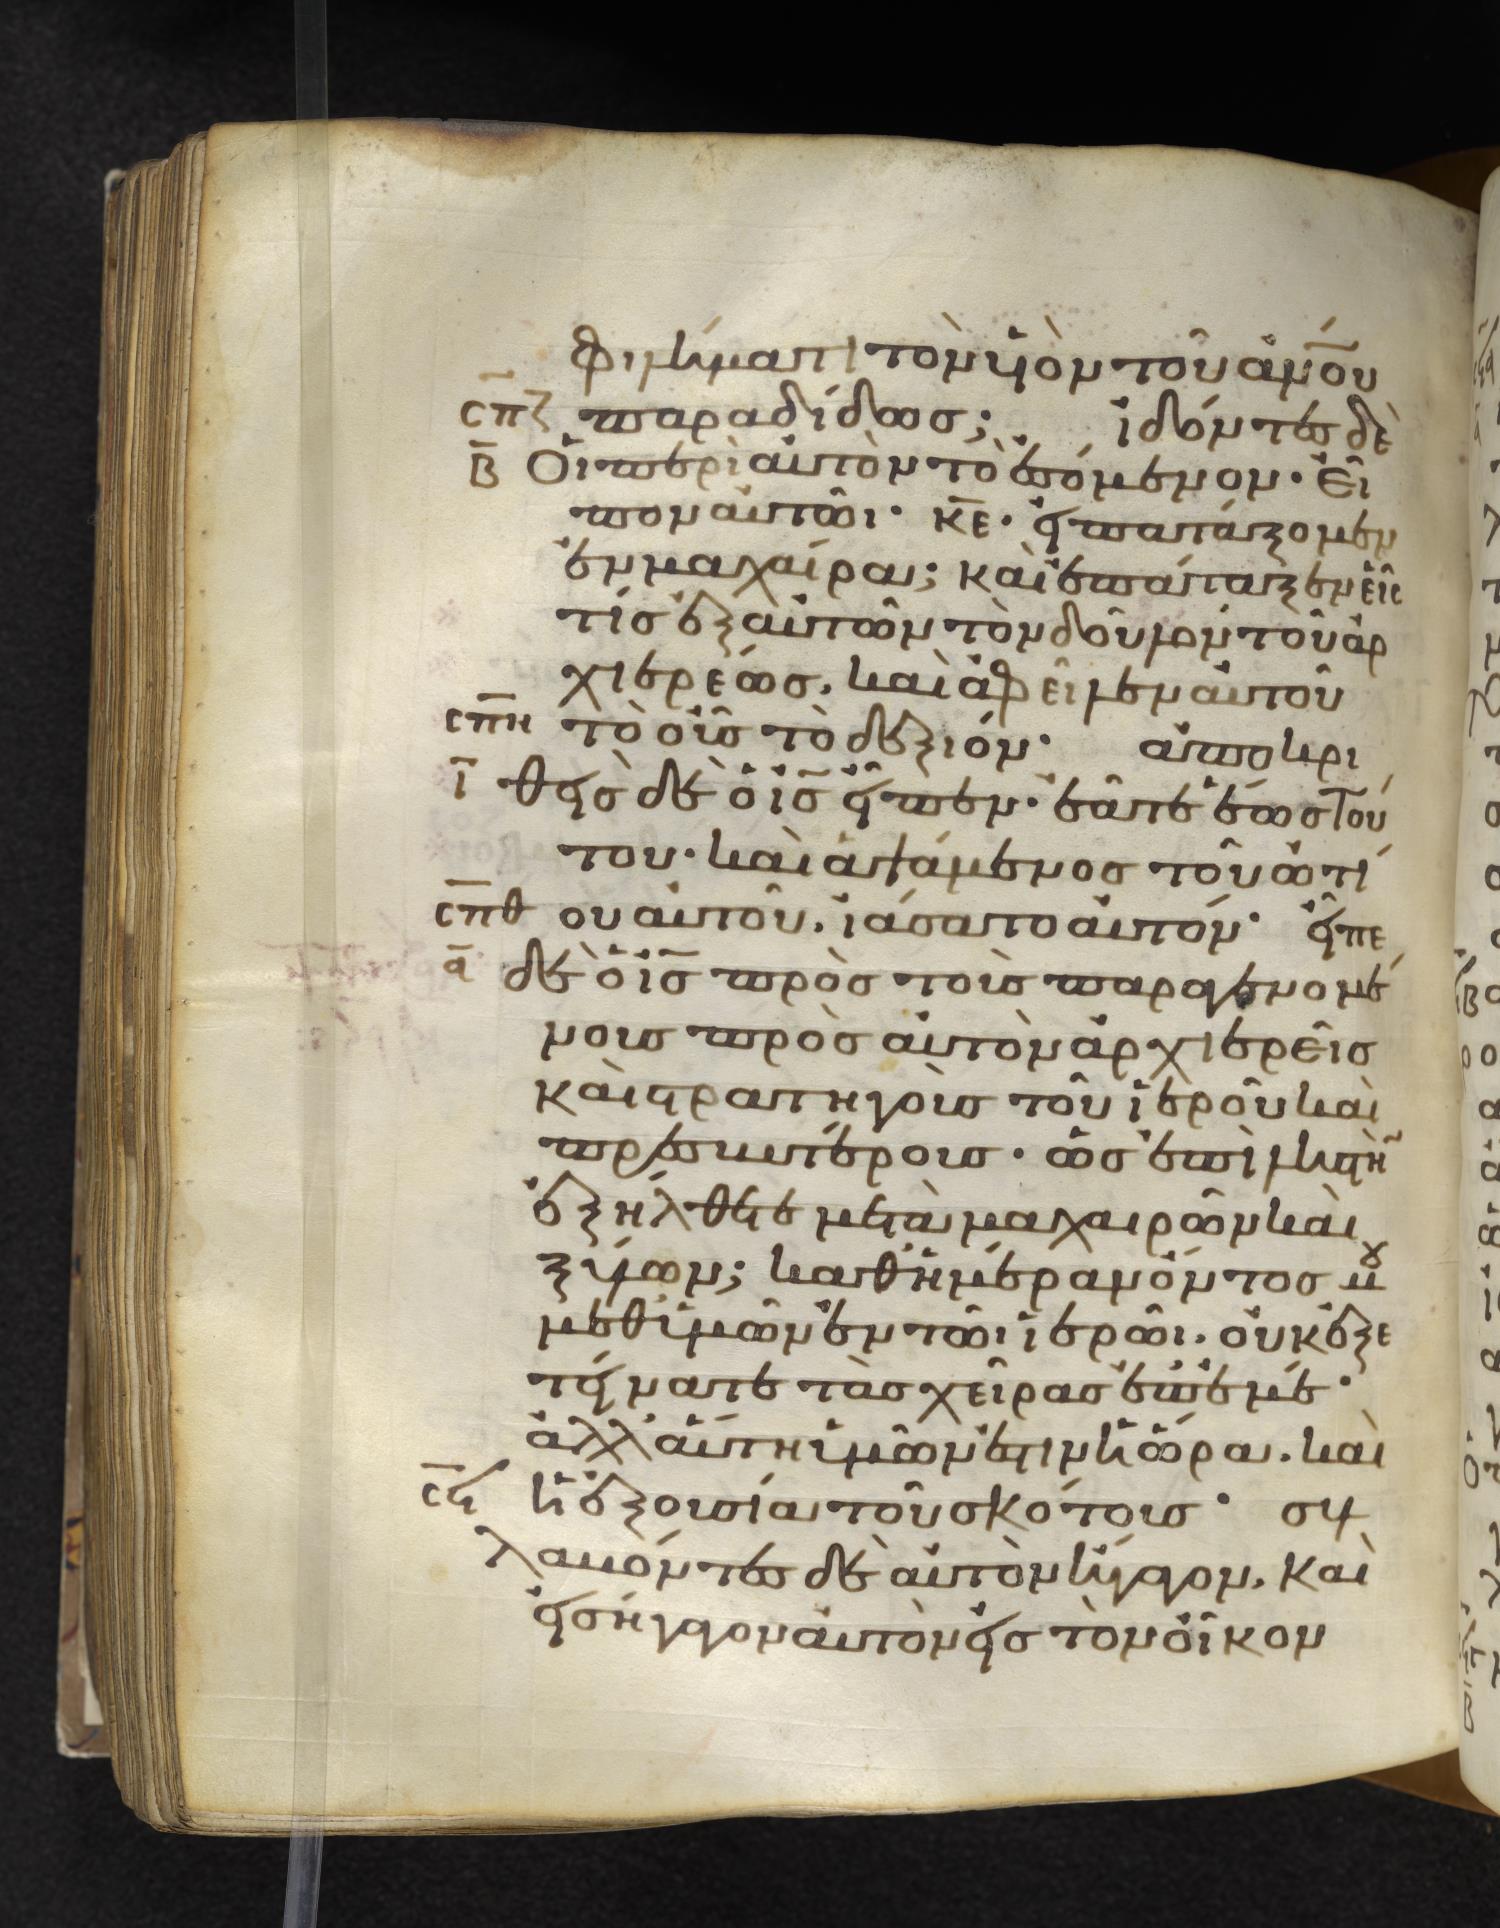 φιλήματι τὸν υἱὸν τοῦ ἀν̅ου
ςπζ παραδίδως; ἰδόντες δὲ
β Οἱ περὶ αὐτὸν τὸ ἐσόμενον· εἶ
πον αὐτῶι· κ̅ε· εἰ πατάξομεν
ἐν μαχαίρα; καὶ ἐπάταξεν εἷς
τίς ἐξ αὐτῶν τὸν δοῦλον τοῦ ἀρ
χιερέως, καὶ ἀφεῖλεν αὐτοῦ
ςπη τὸ οὖς τὸ δεξιόν· ἀποκρι
ι θεὶς δὲ ὁ ι̅ς εἶπεν· ἐᾶτε ἕως τού
του· καὶ ἁψάμενος τοῦ ὠτί
ςπθ ου αὐτοῦ, ἰάσατο αὐτόν· εἶπε
α δὲ ὁ ι̅ς πρὸς τοὺς παραγενομέ
νους πρὸς αὐτὸν ἀρχιερεῖς
καὶ στρατηγοὺς τοῦ ἱεροῦ καὶ
πρεσβυτέρους· ὡς ἐπὶ ληστὴν
ἐξήλθετε μετὰ μαχαιρῶν καὶ
ξύλων; καθ ἡμέραν ὄντος μου
μεθ ὑμῶν ἐν τῶι ἱερῶι, οὐκ ἐξε
τείνατε τὰς χεῖρας ἐπ ἐμέ·
ἀλλ αὕτη ὑμῶν ἐστιν ἡ ὥρα, καὶ
ςϟ ἡ ἐξουσία τοῦ σκότους· συλ
λαβόντες δὲ αὐτὸν ἤγαγον, καὶ
εἰσήγαγον αὐτὸν εἰς τὸν οἶκον